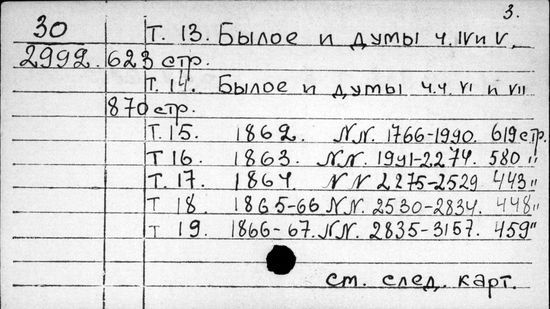 3.
30 Т. 13. Былое и думы ч. IV и V.
2992. 623 стр.
Т. 14. Былое и думы ч.ч. VI и VII
870 стр.
Т. 15. 1862. NN. 1766-1990. 619 стр.
Т 16. 1863. NN. 1991-2274. 580 "
Т. 17. 1864. NN 2275-2529 443 "
Т 18 1865-66 NN. 2530-2834. 448 "
Т 19. 1866-67. NN. 2835-3157. 459 "
см. след. карт.